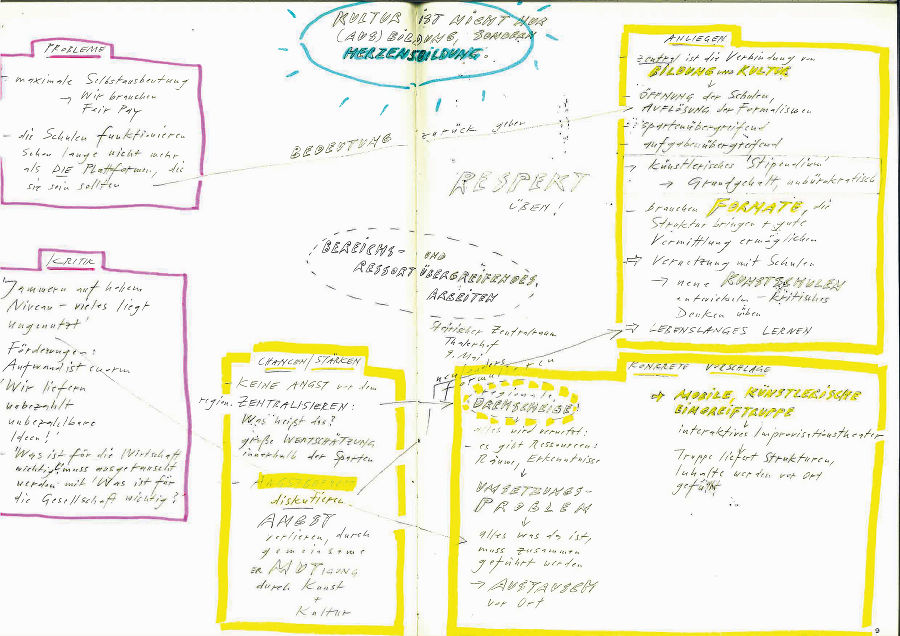 KULTUR IST NICHT NUR
(AUS)BILDUNG, SONDERN
HERZENSBILDUNG.
PROBLEME
- maximale Selbstausbeutung
→ Wir brauchen
Fair Pay
- die Schulen funktionieren
schon lange nicht mehr
als DIE Plattformen, die
sie sein sollten
BEDEUTUNG zurück geben
RESPEKT
ÜBEN!
BEREICHS- UND
RESSORTÜBERGREIFENDES
ARBEITEN
Steirischer Zentralraum
Thalerhof
9. Mai
KRITIK
'Jammern auf hohem
Niveau - vieles liegt
ungenutzt'
Förderungen:
Aufwand ist enorm
'Wir liefern
unbezahlt
unbezahlbare
Ideen!'
- 'Was ist für die Wirtschaft
wichtig?' muss ausgetauscht
werden mit 'Was ist für
die Gesellschaft wichtig?'
CHANCEN/STÄRKEN
- KEINE ANGST vor dem
region. ZENTRALISIEREN:
Was heißt das?
- große WERTSCHÄTZUNG
innerhalb der Sparten
-
diskutieren
ANGST
verlieren, durch
gemeinsame
ERMUTIGUNG
durch Kunst
+
Kultur
ANLIEGEN
- zentral ist die Verbindung von
BILDUNG und KULTUR
- ÖFFNUNG der Schulen,
AUFLÖSUNG der Formalismen
- spartenübergreifend
- aufgabenübergreifend
- künstlerisches 'Stipendium'
→ Grundgehalt, unbürokratisch
- brauchen FORMATE, die
Struktur bringen + gute
Vermittlung ermöglichen
⇒ Vernetzung mit Schulen
→ neue KUNSTSCHULEN
entwickeln - kritisches
Denken üben
⇒ LEBENSLANGES LERNEN
KONKRETE VORSCHLÄGE
regionale
DREHSCHEIBE:
alles wird vernetzt:
- es gibt Ressourcen:
Räume, Erkenntnisse
UMSETZUNGS-
PROBLEM
alles was da ist,
muss zusammen
geführt werden
→ AUSTAUSCH
vor Ort
⇒ MOBILE, KÜNSTLERISCHE
EINGREIFTRUPPE
interaktives Improvisationstheater
Truppe liefert Strukturen,
Inhalte werden vor Ort
gefüllt
9